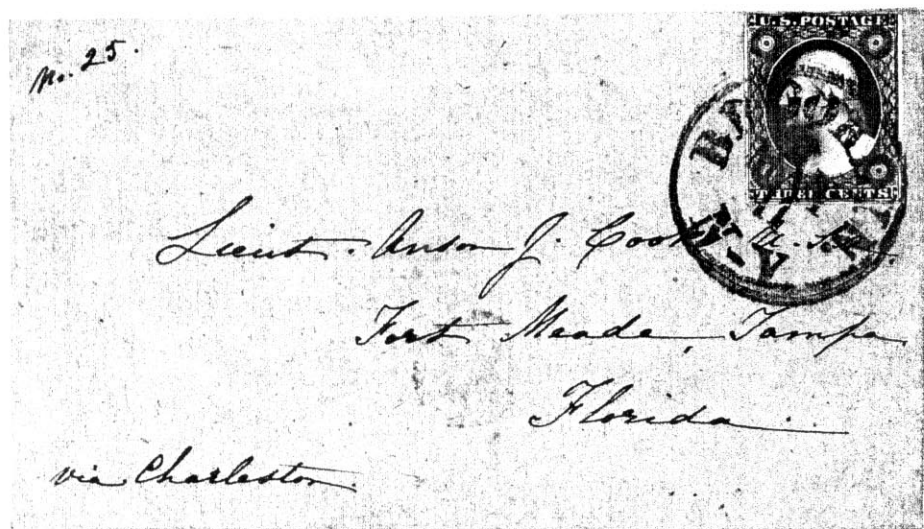 No. 25.
U.S. POSTAGE
THREE CENTS
Lieut. Anson J. Cook
Fort Meade, Tampa
Florida
via Charleston